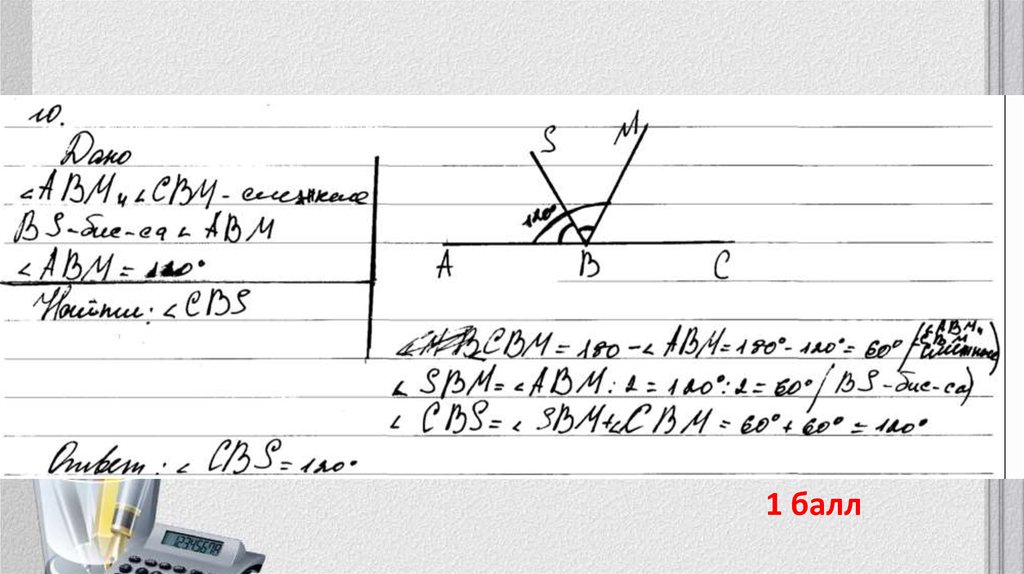 10.
Дано
∠ABM и ∠CBM - смежные
BS - бис-са ∠ ABM
∠ABM = 120°
Найти: ∠CBS
S
M
120°
A
B
C
∠CBM = 180 - ∠ABM = 180° - 120° = 60° (∠ABM и ∠CBM смежные)
∠ SBM = ∠ABM : 2 = 120° : 2 = 60° (BS - бис-са)
∠ CBS = ∠ SBM + ∠CBM = 60° + 60° = 120°
Ответ: ∠ CBS = 120°
12345678
1 балл